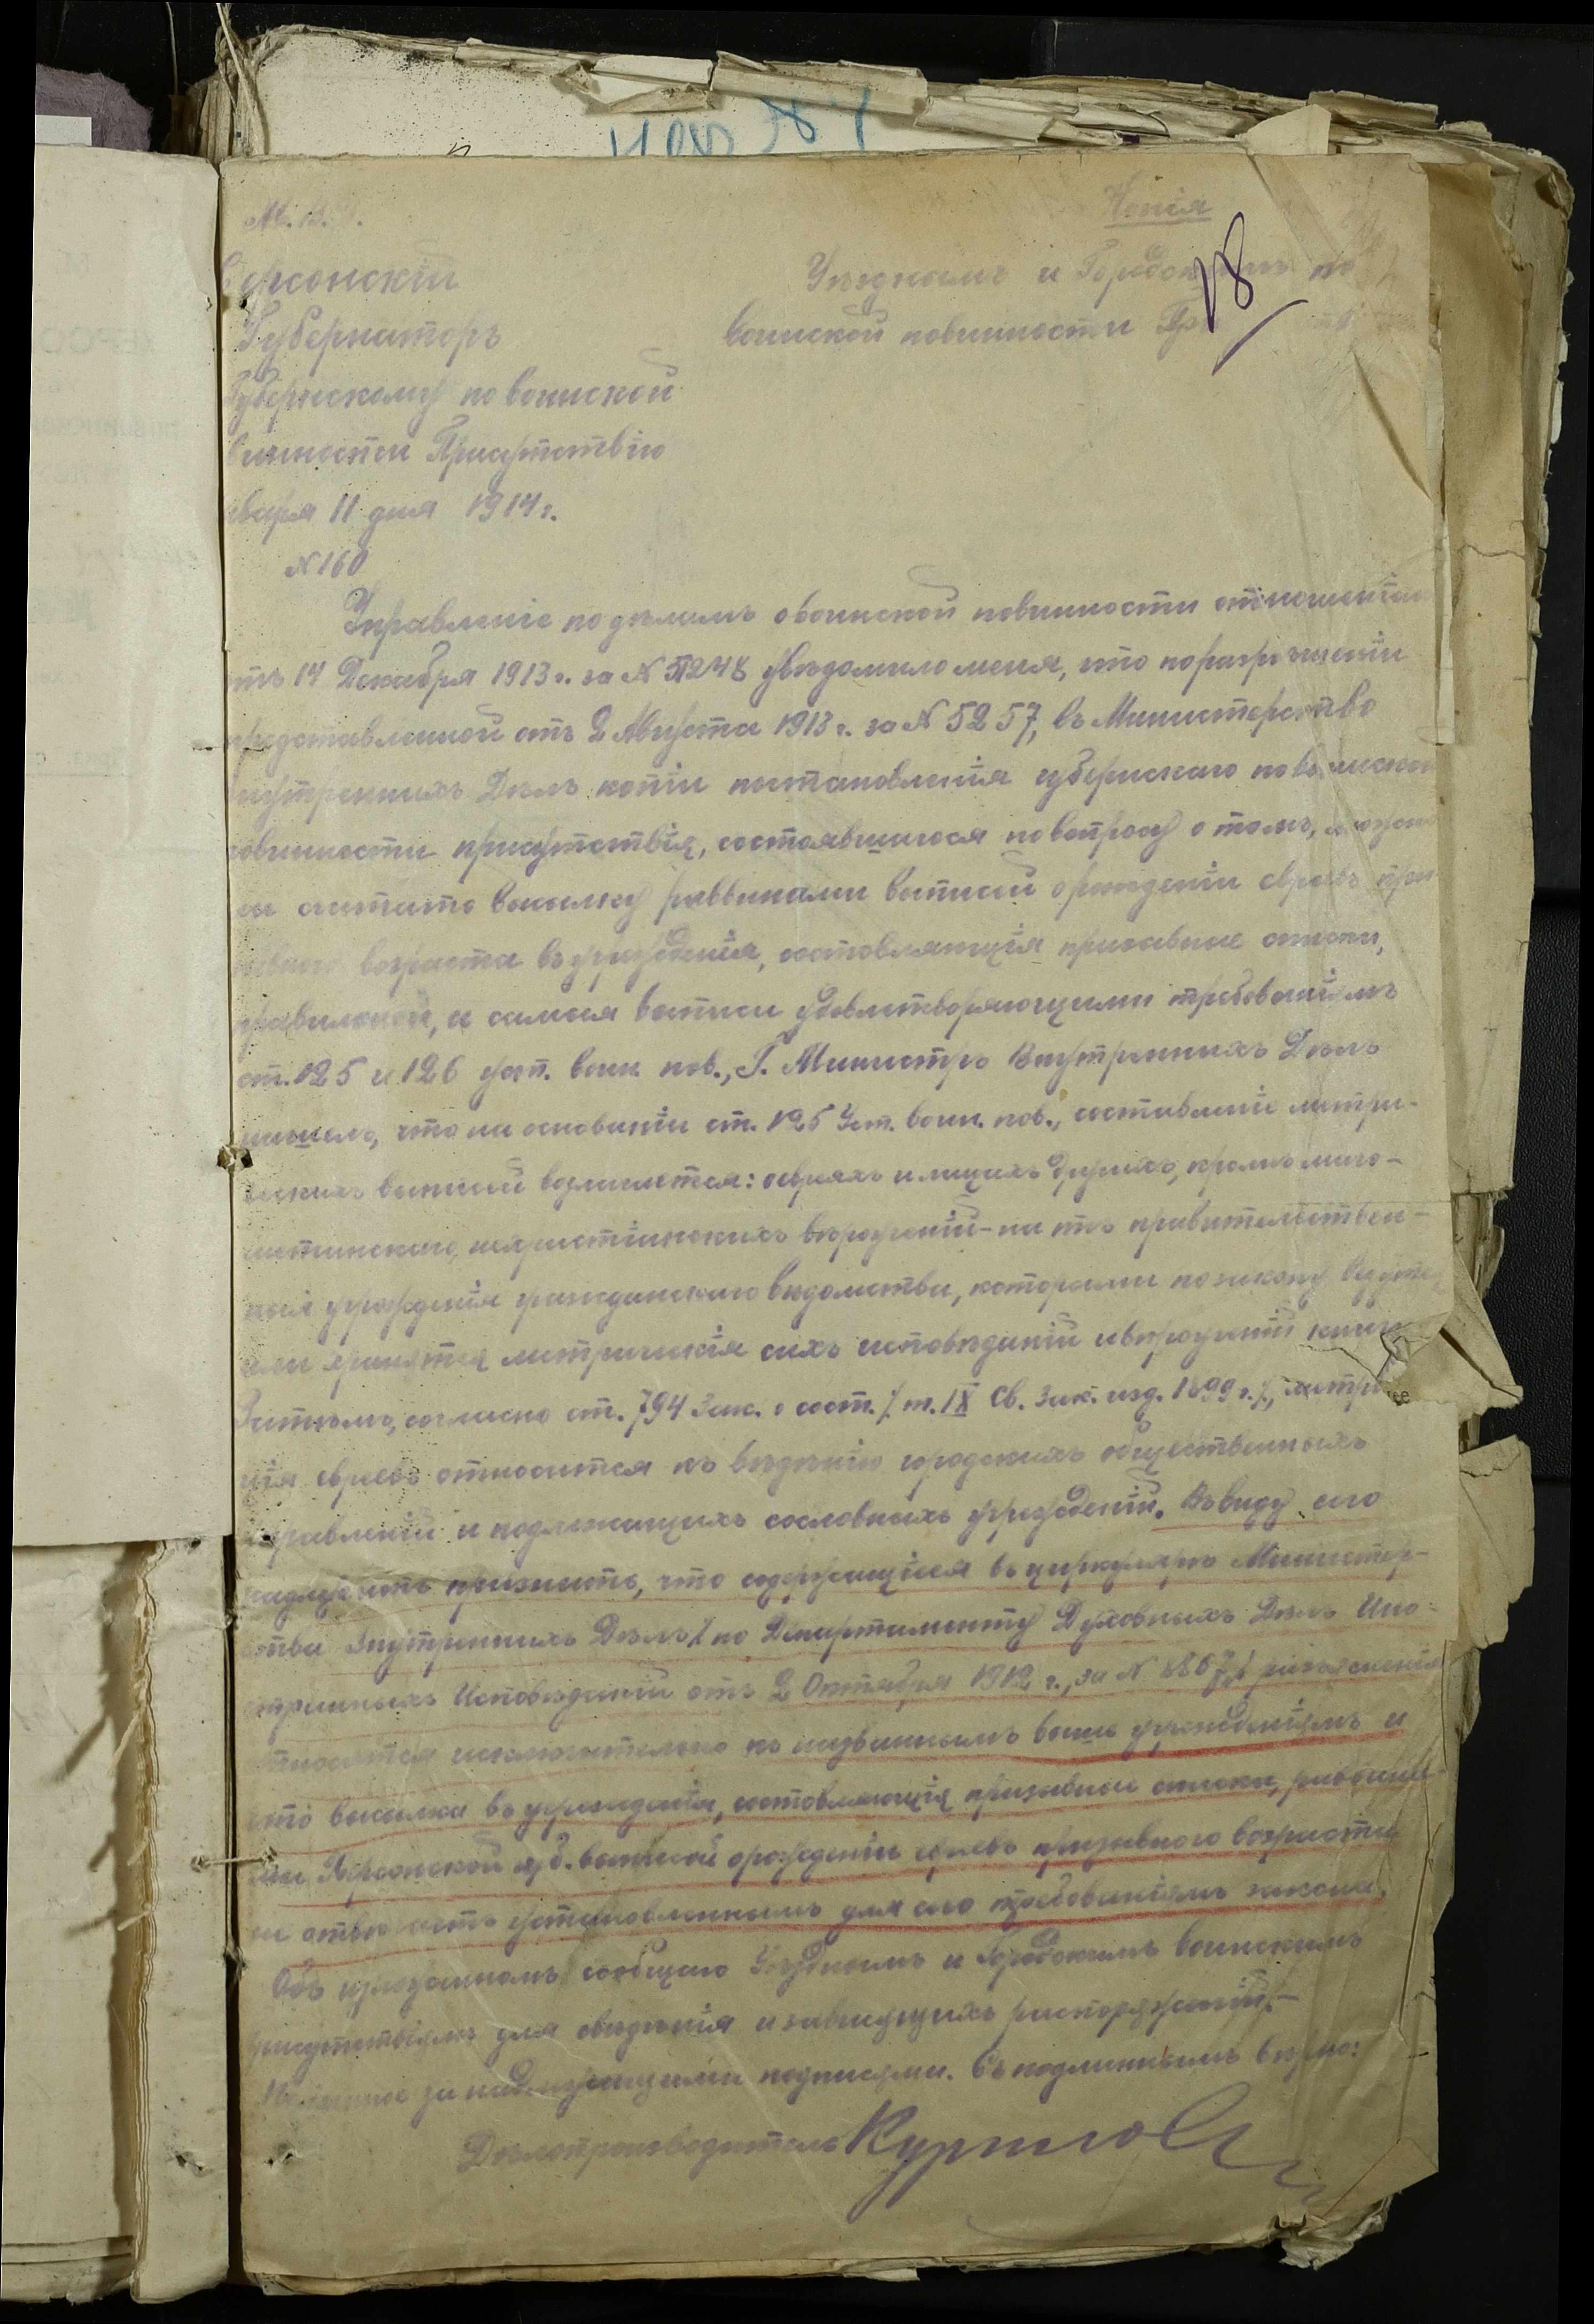 Копія
М. В. Д.
Херсонскій
Губернаторъ
Губернскому по воинской
винности Присутствію
варя 11 дня 1914 г.
№ 160
18
Уѣзднымъ и Городскимъ по
воинской повинности
Управленіе по дѣламъ о воинской повинности отношеніемъ
отъ 14 Декабря 1913 г. за № увѣдомило меня, что по разрѣшеніи
представленной отъ 2 Августа 1913 г. за № 5257, въ Министерство
нутреннихъ Дѣлъ копіи постановленія губернскаго по воинской
повинности присутствія, состоявшагося по вопросу о томъ, можно
ли считать высылку раввинами выписей о рожденіи евреевъ при
зывного возраста въ учрежденія, составляющія призывные списки,
правильной, и самыя выписи удовлетворяющими требованіямъ
ст. 125 и 126 уст. воин. пов., Г. Министръ Внутреннихъ Дѣлъ
нашелъ, что на основаніи ст. 125 Уст. воин. пов., составленіе метри-
ческихъ выписей возлагается: о евреяхъ и лицахъ другихъ, кромѣ маго-
метанскаго, нехристіанскихъ вѣроученій - на тѣ правительствен-
ныя учрежденія гражданскаго вѣдомства, которыми по закону ведутся
или хранятся метрическія сихъ исповѣданій и вѣроученій книги
Затѣмъ, согласно ст. 794 Зак. о сост. /т. IX Св. Зак. изд. 1899 г./, метри
ція евреевъ относится къ вѣдѣнію городскихъ общественныхъ
управленій и подлежащихъ сословныхъ учрежденій. Въ виду сего
надлежитъ признать, что содержащіяся въ циркулярѣ Министер-
ства Внутреннихъ Дѣлъ /по Департаменту Духовныхъ Дѣлъ Ино-
странныхъ Исповѣданій отъ 2 Октября 1912 г., за № / разъясненія
относятся исключительно къ названнымъ выше учрежденіямъ и
что высылка въ учрежденія, составляющія призывные списки, раввина
ми Херсонской губ. выписей о рожденіи евреевъ призывного возраста
не отвѣчаетъ установленнымъ для сего требованіямъ закона.
Объ изложенномъ сообщаю Уѣзднымъ и Городскимъ воинскимъ
присутствіямъ для свѣдѣнія и зависящихъ распоряженій.-
Подлинное за надлежащими подписями. Съ подлиннымъ вѣрно:
Дѣлопроизводитель